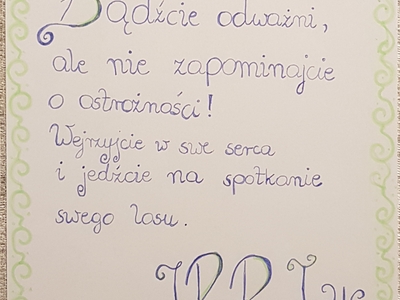 Bądźcie odważni,
ale nie zapominajcie
o ostrożności!
Wejrzyjcie w swe serca
i jedźcie na spotkanie
swego losu.